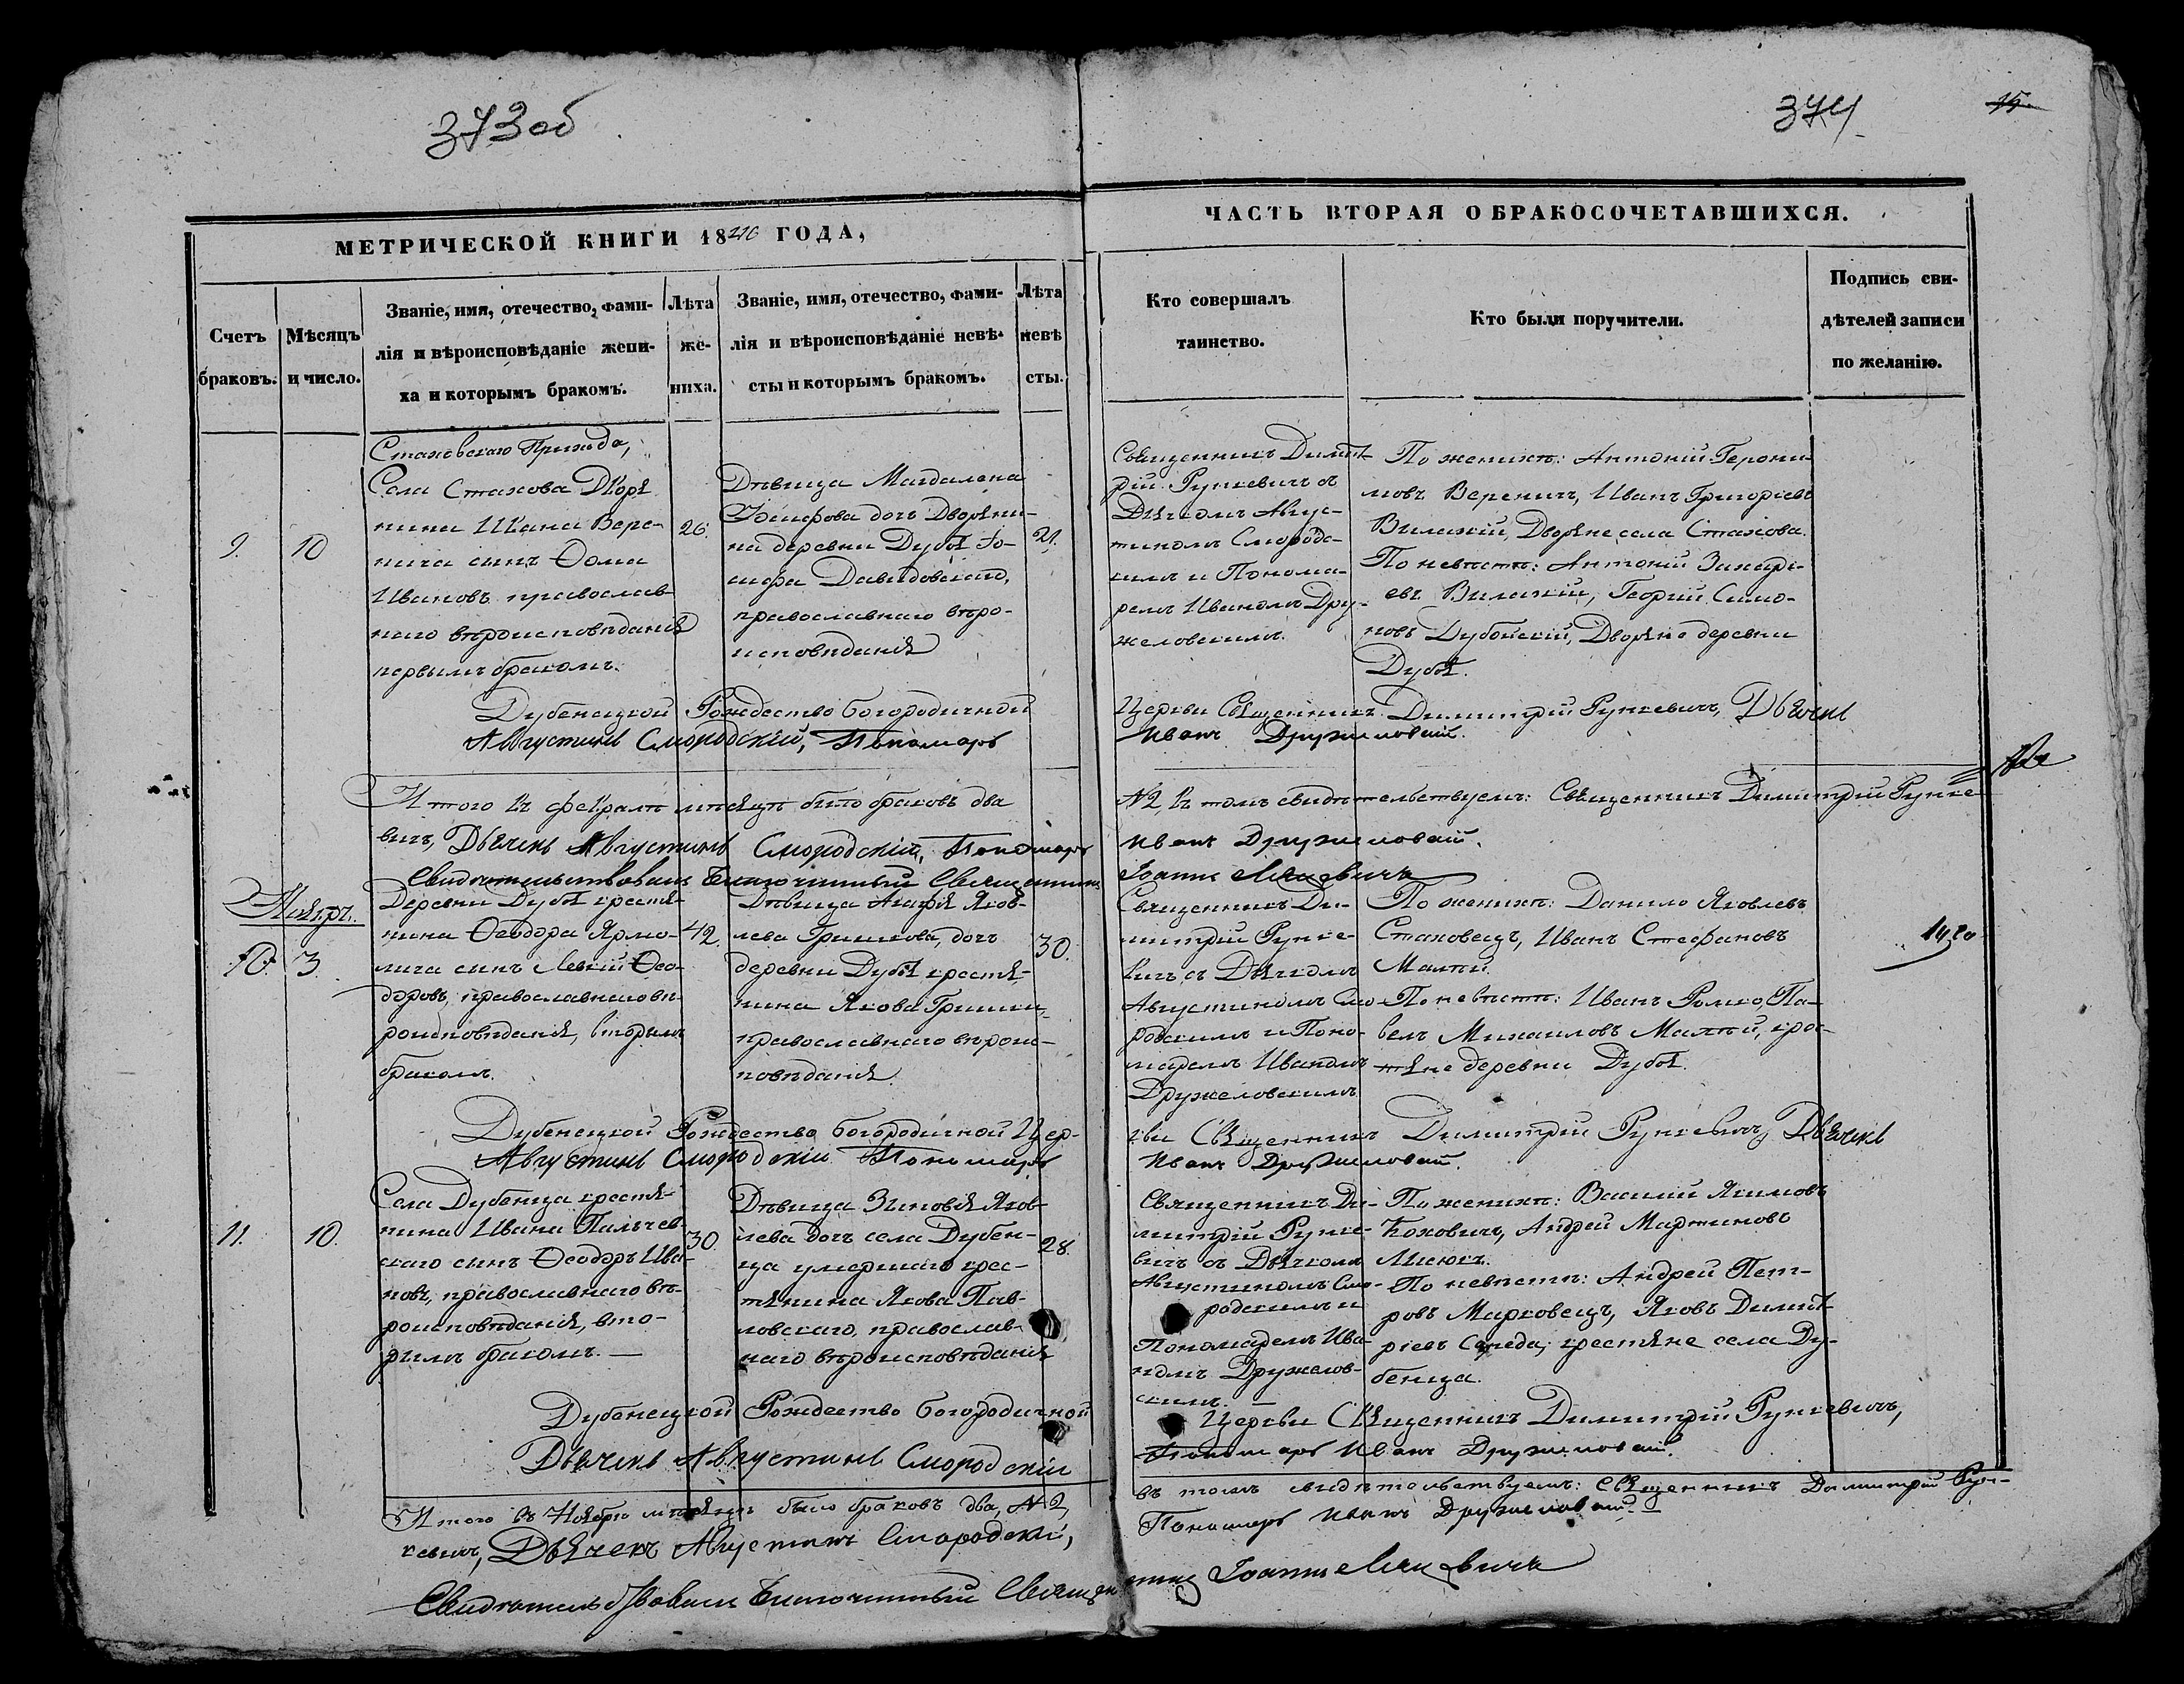 373об
374
15.
МЕТРИЧЕСКОЙ КНИГИ 1846 ГОДА,
ЧАСТЬ ВТОРАЯ О БРАКОСОЧЕТАВШИХСЯ.
Счетъ
браковъ.
Мѣсяцъ
и число.
Званіе, имя, отечество, фами-
лія и вѣроисповѣданіе жени-
ха и которымъ бракомъ.
Лѣта
же-
ниха.
Званіе, имя, отечество, фами-
лія и вѣроисповѣданіе невѣ-
сты и которымъ бракомъ.
Лѣта
невѣ
сты.
Кто совершалъ
таинство.
Кто были поручители.
Подпись сви-
дѣтелей записи
по желанію.
9.
10
Стаховскаго Прихода,
Села Стахова Дворя
нина Ивана Вере-
нича сынъ Ѳома
Ивановъ православ-
наго вѣроисповѣданія
первымъ бракомъ.
26.
Дѣвица Магдалена
Іосифова дочь Дворяни-
на деревни Дубоя Іо-
сифа Давидовскаго,
православнаго вѣро-
исповѣданія
21.
Священникъ Димит-
рій Рункевичъ съ
Дьячкомъ Авгус-
тиномъ Смородс-
кимъ и Понома-
ремъ Иваномъ Дру-
жиловскимъ.
По женихѣ: Антоній Герони-
мовъ Вереничъ, Иванъ Григоріевъ
Вилискій, Дворяне села Стахова.
По невѣстѣ: Антоній Захарі-
евъ Вилискій, Георгій Симо-
новъ Дубойскій, Дворяне деревни
Дубоя.
Дубенецкой Рождество Богородичной Церкви Священникъ Димитрій Рункевичъ, Дьячекъ
Августинъ Смородскій, Пономарь Иванъ Дружиловскій.
Итого въ февралѣ мѣсяцѣ было браковъ два №2, въ томъ свидѣтельствуемъ: Священникъ Димитрій Рунке
вичъ, Дьячекъ Августинъ Смородскій, Пономарь Иванъ Дружиловскій.
Свидѣтельствовалъ Благочинный Священникъ Іоаннъ
Ноябрь.
10.
3.
Деревни Дубоя крестья-
нина Ѳеодора Ярмо-
лича сынъ Левкій Ѳео-
доровъ, православнаго вѣ-
роисповѣданія, вторымъ
бракомъ.
42.
Дѣвица Агафія Яков-
лева Гришкова, дочь
деревни Дубоя крестья-
нина Якова Гришки,
православнаго вѣроис-
повѣданія.
30.
Священникъ Ди-
митрій Рунке-
вичъ съ Дьячкомъ
Августиномъ Смо-
родскимъ и Поно-
маремъ Иваномъ
Дружиловскимъ
По женихѣ: Данило Яковлевъ
Стаховецъ, Иванъ Стефановъ
Малый.
По невѣстѣ: Иванъ Ромко, Па-
велъ Михаиловъ Малый, крес-
тьяне деревни Дубоя.
Дубенецкой Рождество Богородичной Цер- кви Священникъ Димитрій Рункевичъ, Дьячекъ
Августинъ Смородскій Пономарь Иванъ Дружиловскій.
11.
10.
Села Дубенца крестья-
нина Ивана Пальчев-
скаго сынъ Ѳеодоръ Ива-
новъ, православнаго вѣ-
роисповѣданія, вто-
рымъ бракомъ.
30.
Дѣвица Зиновія Яков-
лева дочь села Дубен-
ца умершаго крес-
тьянина Якова Пав-
ловскаго, православ-
наго вѣроисповѣданія
28.
Священникъ Ди-
митрій Рунке-
вичъ съ Дьячкомъ
Августиномъ Смо-
родскимъ и
Пономаремъ Ива-
номъ Дружилов-
скимъ.
По женихѣ: Василій Якимовъ
Коховичъ, Андрей Мартиновъ
Мисюкъ.
По невѣстѣ: Андрей Пет-
ровъ Марковецъ, Яковъ Димит-
ріевъ Середа, крестьяне села Ду-
бенца.
Дубенецкой Рождество Богородичной Церкви Священникъ Димитрій Рункевичъ,
Дьячекъ Августинъ Смородскій Пономарь Иванъ Дружиловскій.
Итого въ Ноябрѣ мѣсяцѣ было браковъ два, №2, въ томъ свидѣтельствуемъ: Священникъ Димитрій Рун-
кевичъ, Дьячекъ Августинъ Смородскій, Пономарь Иванъ Дружиловскій.
Свидѣтельствовалъ Благочинный Священникъ Іоаннъ